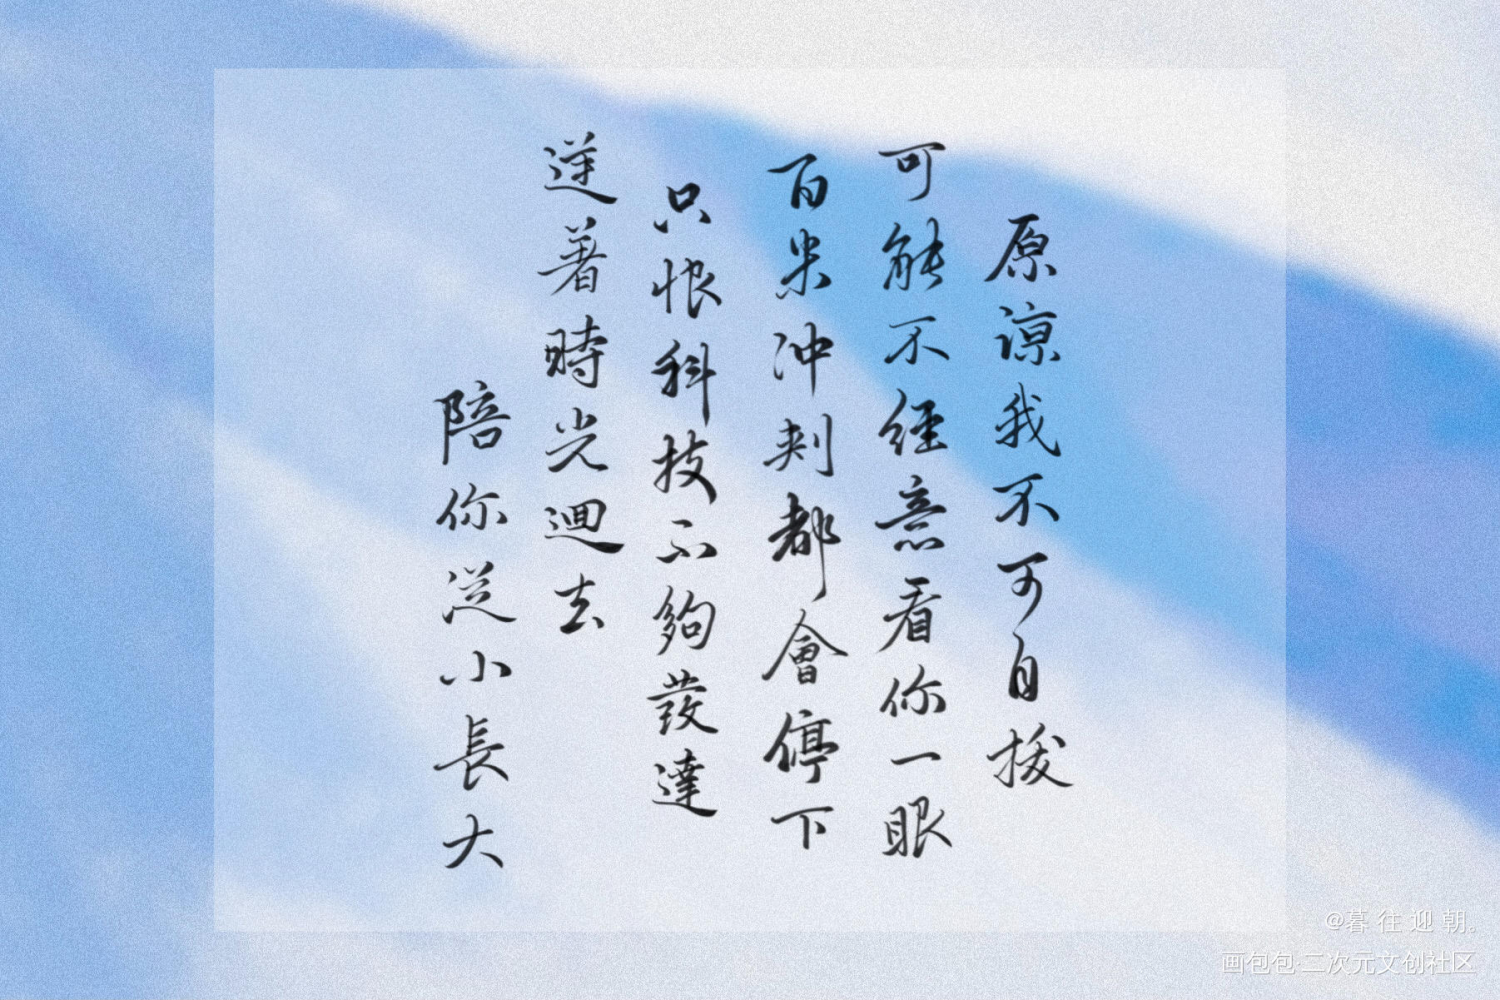 原諒我不可自拔
可能不经意看你一眼
百米冲刺都會停下
只恨科技不夠發達
逆著時光迴去
陪你从小長大
@暮往迎朝。
画包包·二次元文创社区